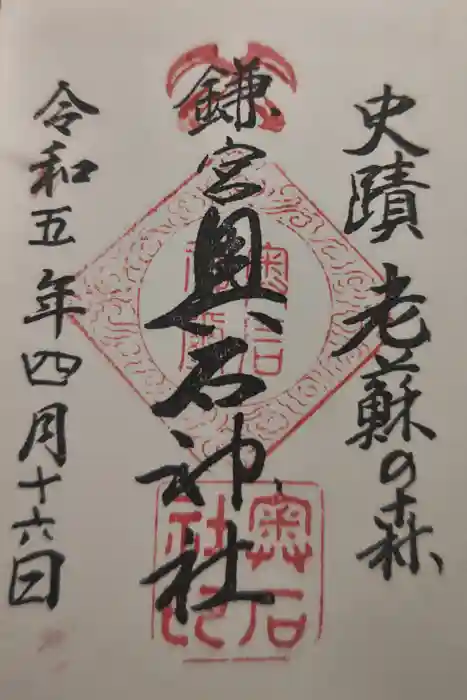 史蹟 老蘇の森
鎌宮奥石神社
令和五年四月十六日
奥石
社印